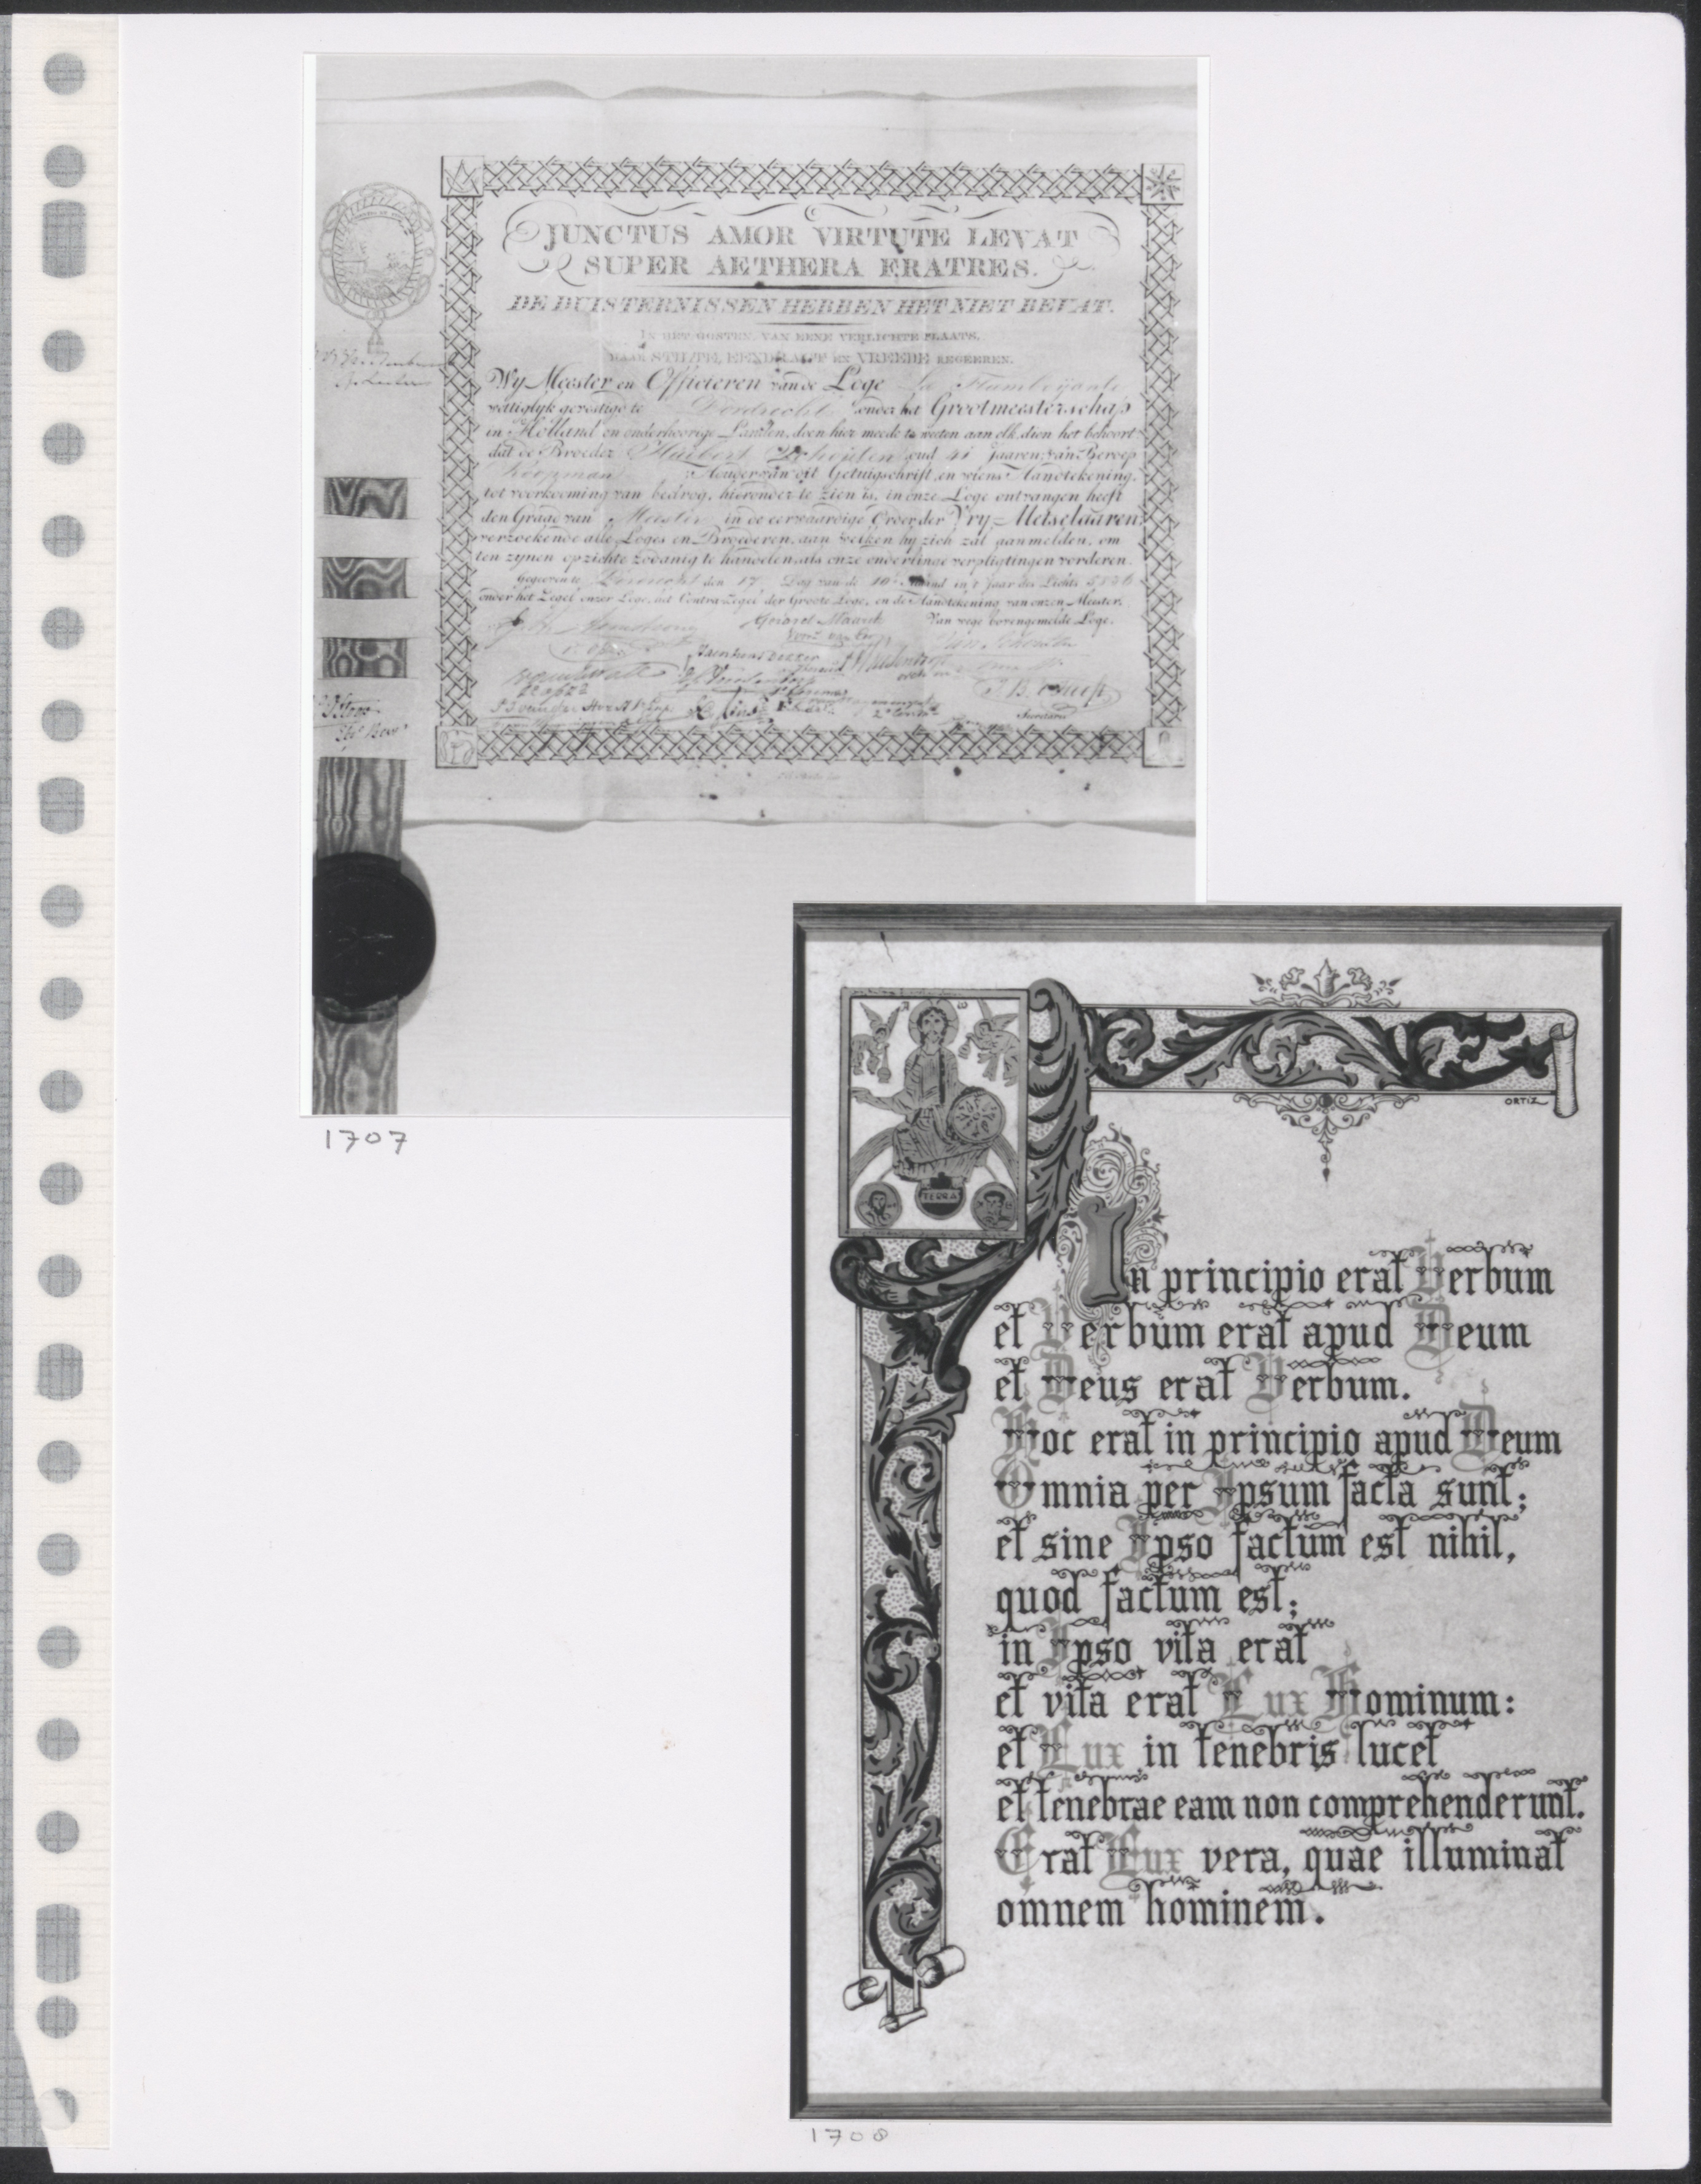 JUNCTUS AMOR VIRTUTE LEVAT
SUPER AETHERA ERATRES.
DE DUISTERNISSEN HEBBEN HET NIET BEVAT.
IN HET OOSTEN, VAN EENE VERLICHTE PLAATS,
DAAR STILTE, EENDRAGT EN VREEDE REGEEREN.
Wy Meester en Officieren van de Loge La Flamboyante
wettiglyk gevestigd te Dordrecht onder het Grootmeesterschap
in Holland en onderhoorige Landen, doen hier mede te weeten aan elk, dien het behoort
dat de Broeder Huibert oud 41 Jaaren, van Beroep
Koopman Houder van dit Getuigschrift, en wiens Handtekening,
tot voorkooming van bedrog, hieronder te zien is, in onze Loge ontvangen heeft
den Graad van Meester in de eerwaardige Order der Vry-Metselaaren
verzoekende alle Loges en Broederen, aan welken hy zich zal aanmelden, om
ten zynen opzichte zodanig te handelen, als onze onderlinge verpligtingen vorderen.
Gegeven te Dordrecht den 17 Dag van de 10e Maand in't Jaar des Lichts
onder het Zegel onzer Loge, het Contra-Zegel der Groote Loge, en de Handtekening van onzen Meester.
Van wege bovengemelde Loge.
Secretaris
1707
A ω
TERRA
ORTIZ
In principio erat Verbum
et Verbum erat apud Deum
et Deus erat Verbum.
Hoc erat in principio apud Deum
Omnia per Ipsum facta sunt;
et sine Ipso factum est nihil,
quod factum est;
in Ipso vita erat
et vita erat Lux Hominum:
et Lux in tenebris lucet
et tenebrae eam non comprehenderunt.
Erat Lux vera, quae illuminat
omnem hominem.
1708